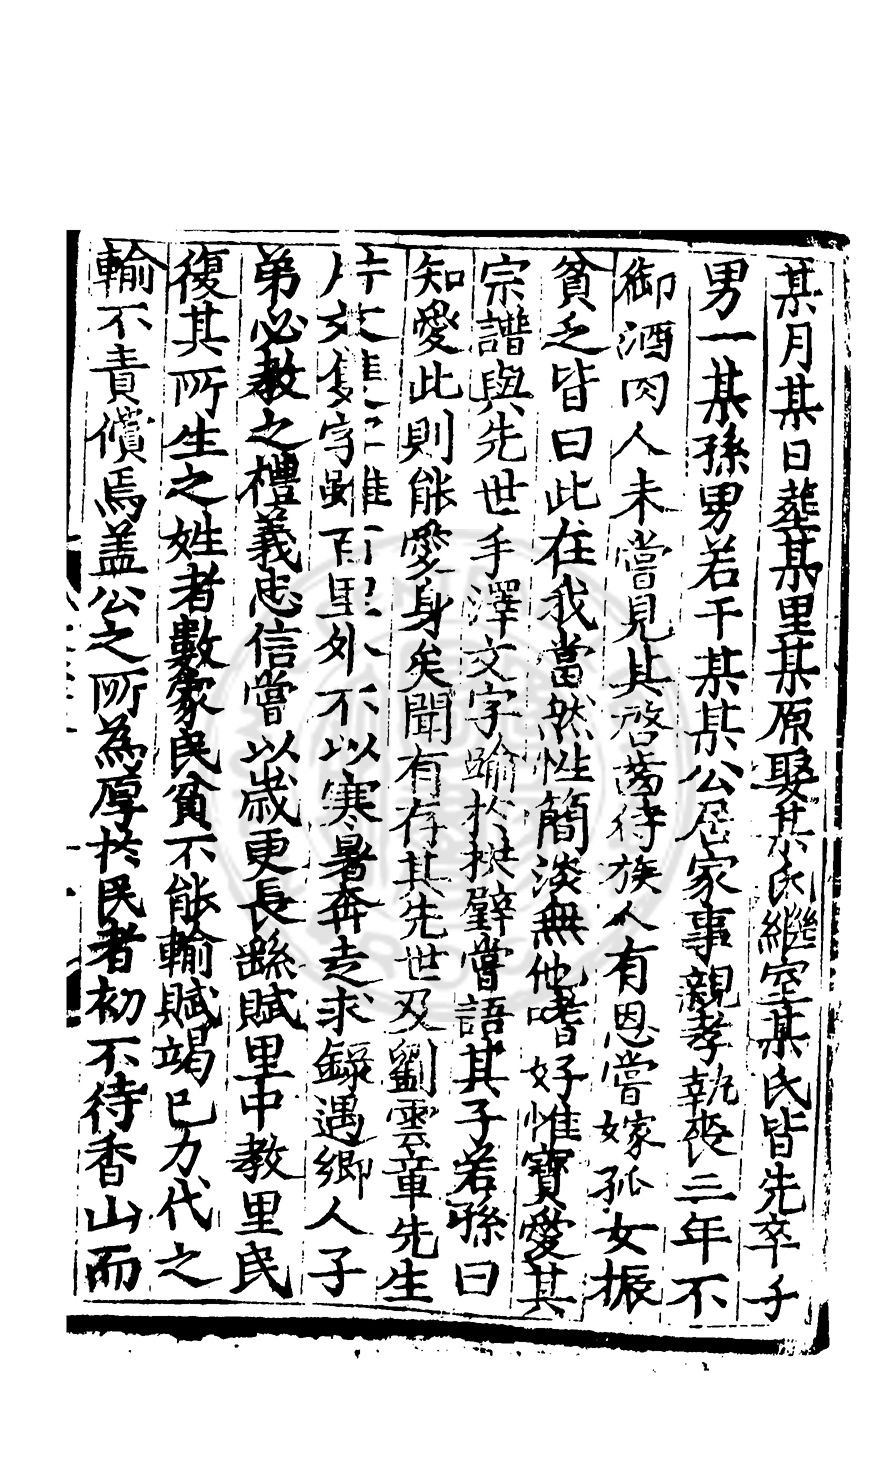 某月某日葬某里某原娶某氏繼室某氏皆先卒子
男一某孫男若干某某公居家事親孝執喪三年不
御酒肉人未嘗見其啓齒待族人有恩嘗嫁孤女振
貧乏皆曰此在我當然性簡淡無他嗜好惟寶愛其
宗譜與先世手澤文字踰於拱璧嘗語其子若孫曰
知愛此則能愛身矣聞有存其先世及劉雲章先生
片文隻字雖百里外不以寒暑奔走求錄遇鄉人子
弟必教之禮義忠信嘗以歲更長繇賦里中教里民
復其所生之姓者數家民貧不能輸賦竭己力代之
輸不責償焉盖公之所為厚於民者初不待香山而